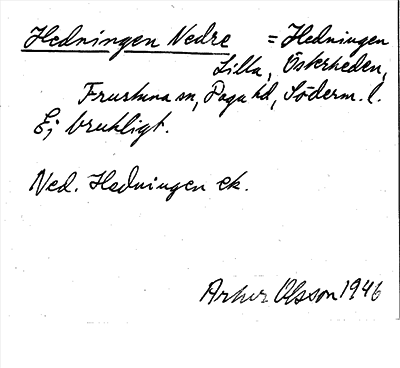 Hedningen Nedre = Hedningen
Lilla, Österheden,
Frustuna sn, Daga hd, Söderm. l.
Ej brukligt.
Ned. Hedningen ek.
Arthur Olsson 1946